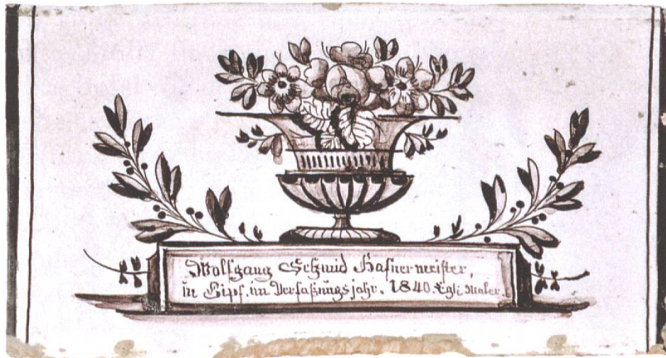 Wolfgang Schmid Hafnermeister,
in Gipf, im Verfaßungsjahr, 1840. Egli Maler.